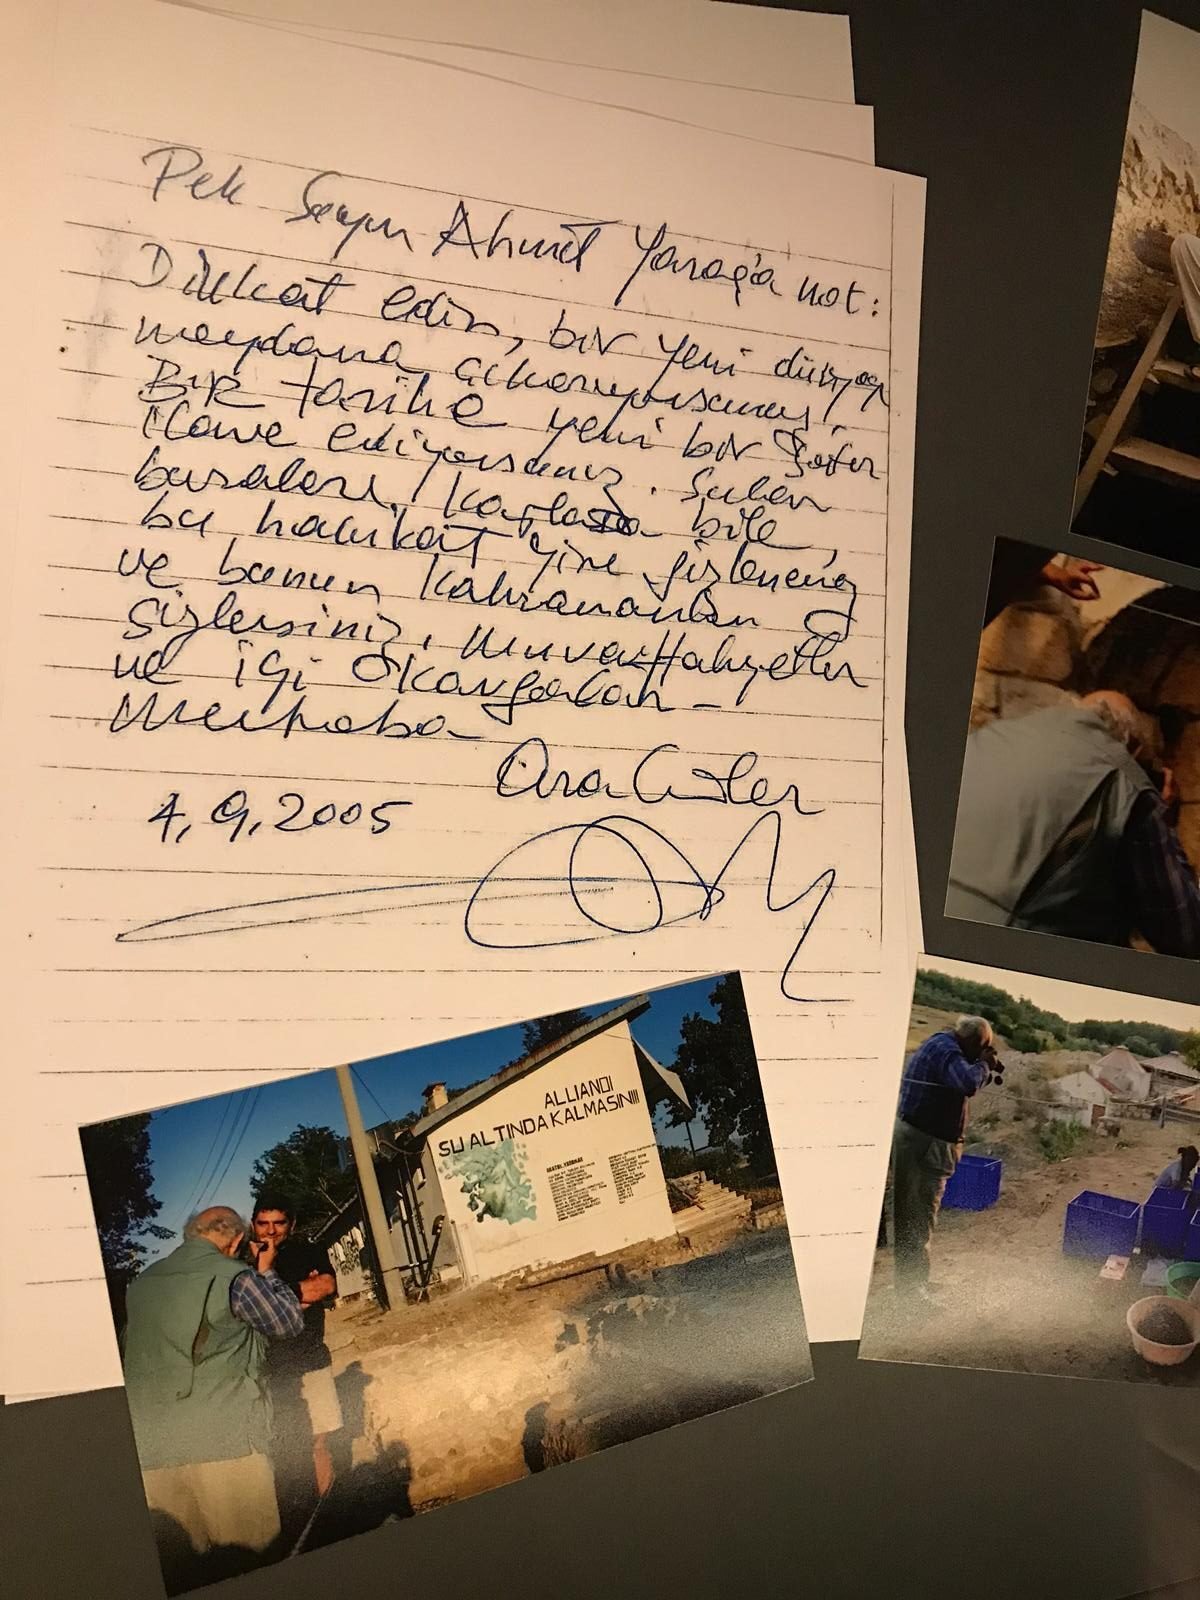 Pek Sayın Ahmet Yaraş'a not:
Dikkat edin, bir yeni dünyayı
meydana çıkarıyorsunuz,
BİR tarihe yeni bir satır
ilave ediyorsunuz. Sular
buraları kaplasa bile,
bu hakikat yine gizlenemez
ve bunun kahramanları
sizlersiniz, muvaffakiyetler
ve iyi
Merhaba
Ara Güler
4,9,2005
ALLIANOI
SU ALTINDA KALMASIN!!!